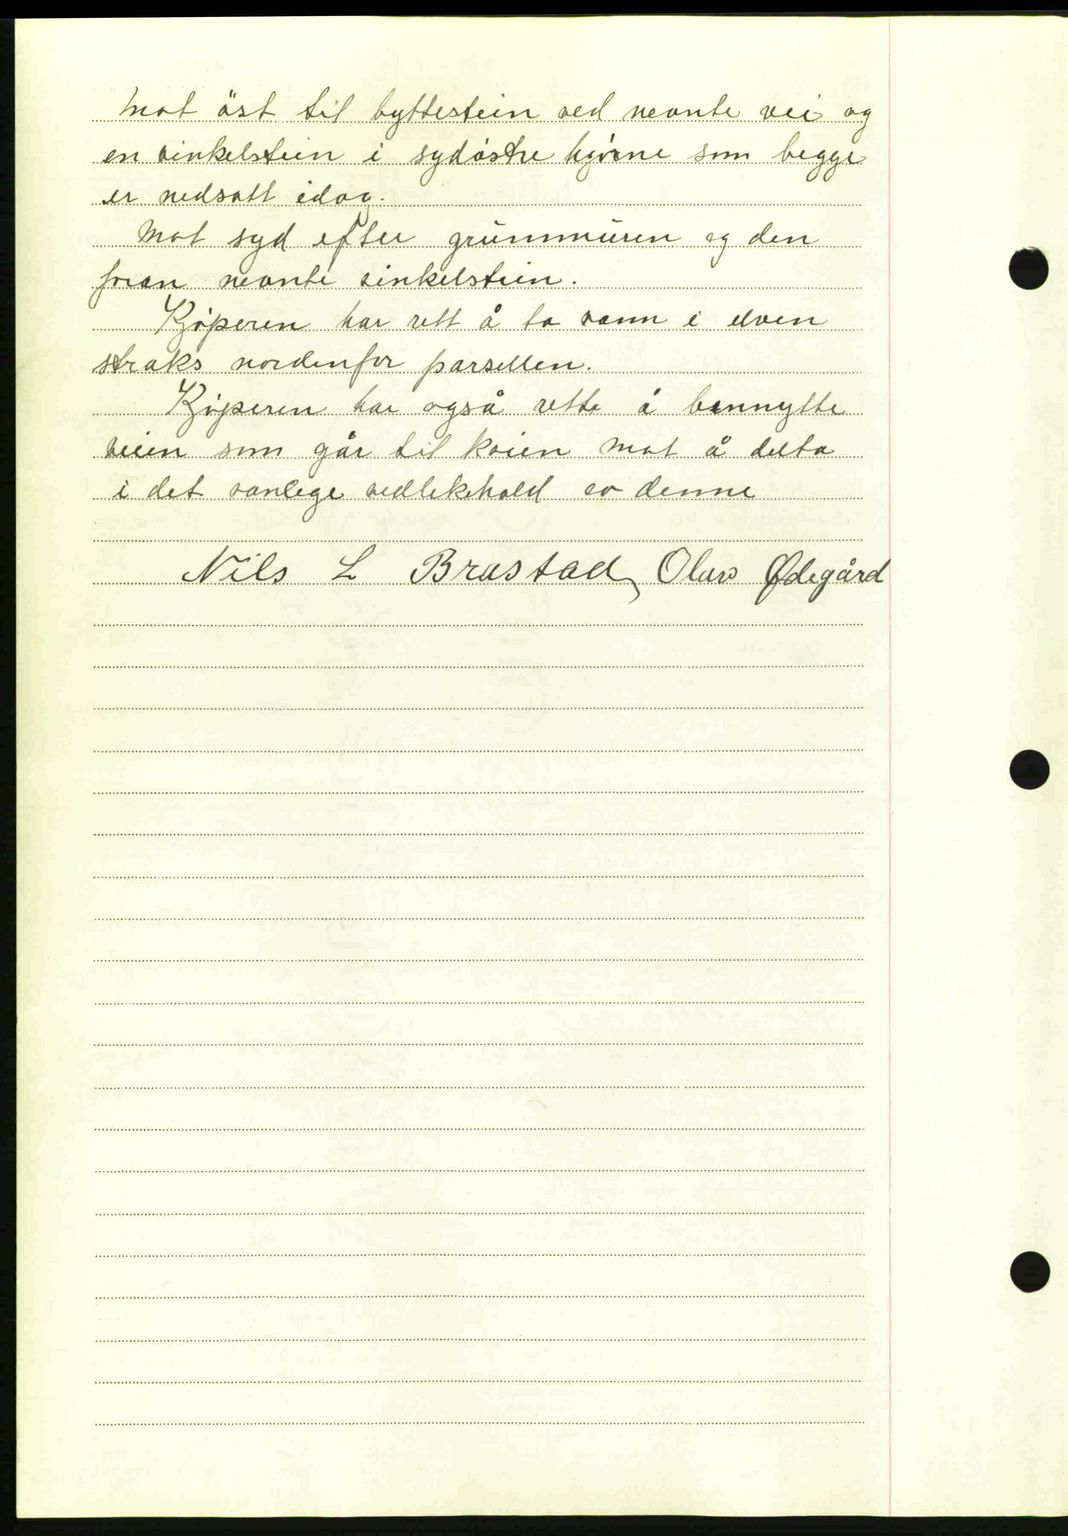 Mot öst til byttestein ved nevnte vei og
en vinkelstein i sydöstre hjörne som begge
er nedsatt idag.
Mot syd efter grunnmuren og den
foran nevnte vinkelstein.
Kjöperen har rett å ta vann i elven
straks nordenfor parsellen.
Kjöperen har også rette å bennytte
veien som går til kaien mot å delta
i det vanlege vedlikehold av denne
Nils L Brastad, Olav Ødegård